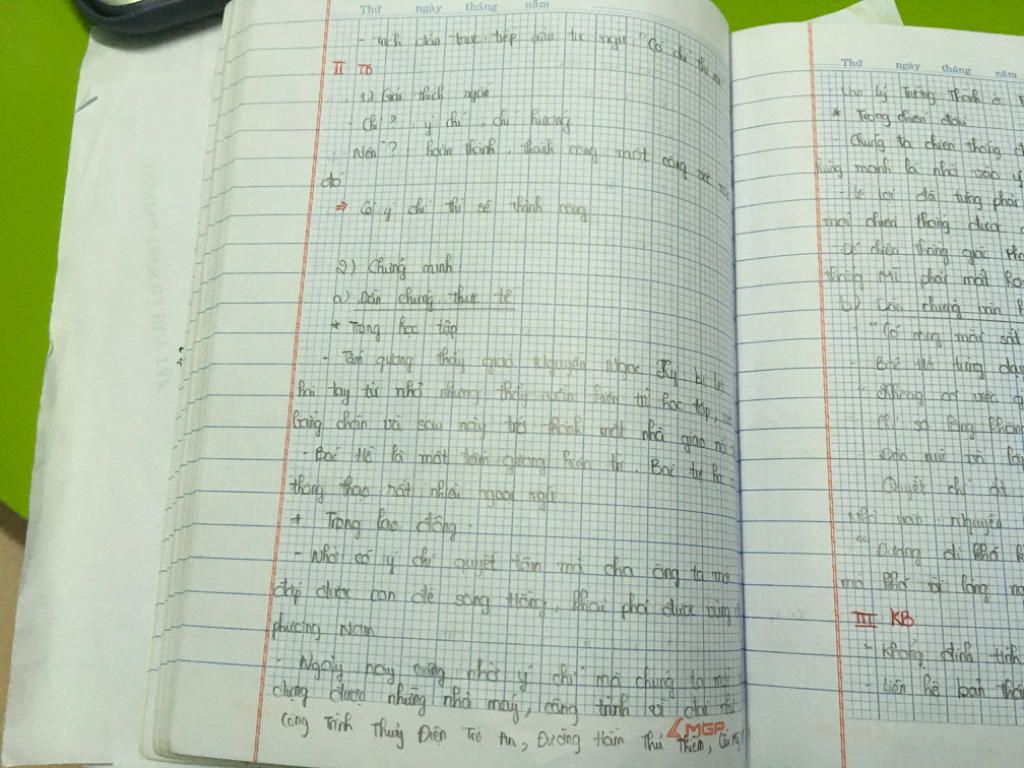 Thứ ngày tháng năm
- Trích dẫn trực tiếp câu tục ngữ "Có chí thì nên
II TB
1) Giải thích nghĩa
- Chí? ý chí, chí hướng
Nên? hoàn thành, thành công một công việc
đó
⇒ Có ý chí thì sẽ thành công
2) Chứng minh
a) Dẫn chứng thực tế
* Trong học tập
- Tấm gương thầy giáo Nguyễn Ngọc Ký bị liệt
hai tay từ nhỏ nhưng thầy vẫn kiên trì học tập,
bằng chân và sau này trở thành một nhà giáo
- Bác Hồ là một tấm gương kiên trì. Bác tự học
thông thạo rất nhiều ngoại ngữ
* Trong lao động
- Nhờ có ý chí quyết tâm mà cha ông ta mới
đắp được con đê sông Hồng, khai phá được vùng
phương Nam
- Ngày nay cũng nhờ ý chí mà chúng ta mới
dựng được những nhà máy, công trình vĩ đại như
Công Trình Thuỷ Điện Trị An, Đường Hầm Thủ Thiêm,
MGP
Thứ ngày tháng năm
Lý Tường Thành ở
* Trong chiến đấu
- Chúng ta chiến thắng
hùng mạnh là nhờ vào ý
- Lê Lợi đã từng phải
mới chiến thắng được
- Để chiến thắng giặc
thắng Mĩ phải mất
b) Dẫn chứng
- "Có mài sắt
- Bác Hồ từng dạy
"Không có việc gì
Chỉ sợ lòng không
Đào núi và lấp
Quyết chí
Nhà văn Nguyễn
"Đường đi khó
mà khó vì lòng
III KB
- Khẳng định tính
- Liên hệ bản thân